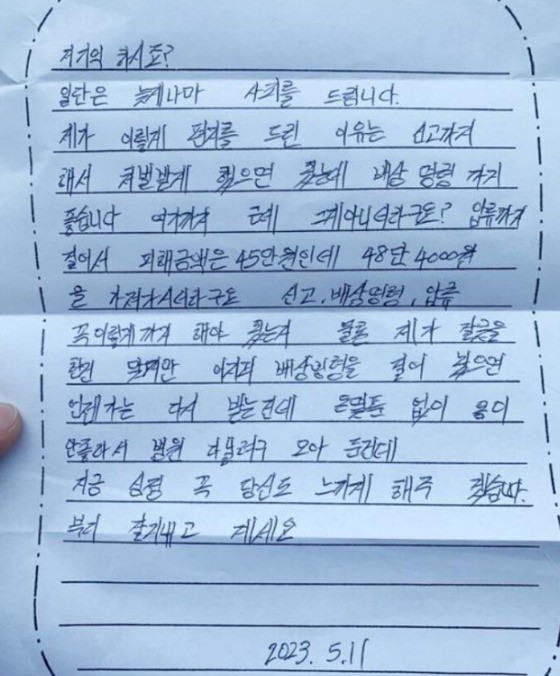 저기억 하시죠?
일단은 늦게나마 사죄를 드립니다.
제가 이렇게 편지를 드린 이유는 신고까지
해서 처벌받게 했으면 됐는데 배상 명령 까지
좋습니다 여기까지 근데 그게아니더라구요? 압류까지
걸어서 피해금액은 45만원인데 48만 4000원
을 가져가시더라구요 신고, 배상명령, 압류
꼭이렇게까지 해야 했는지 물론 제가 잘못을
한건 맞지만 어차피 배상명령을 걸어 놨으면
언젠가는 다시 받는건데 몸이
안좋아서 병원 다닐려구 모아 둔건데
지금 심정 꼭 당신도 느끼게 해주 겠습니다.
부디 잘지내고 계세요
2023. 5.11